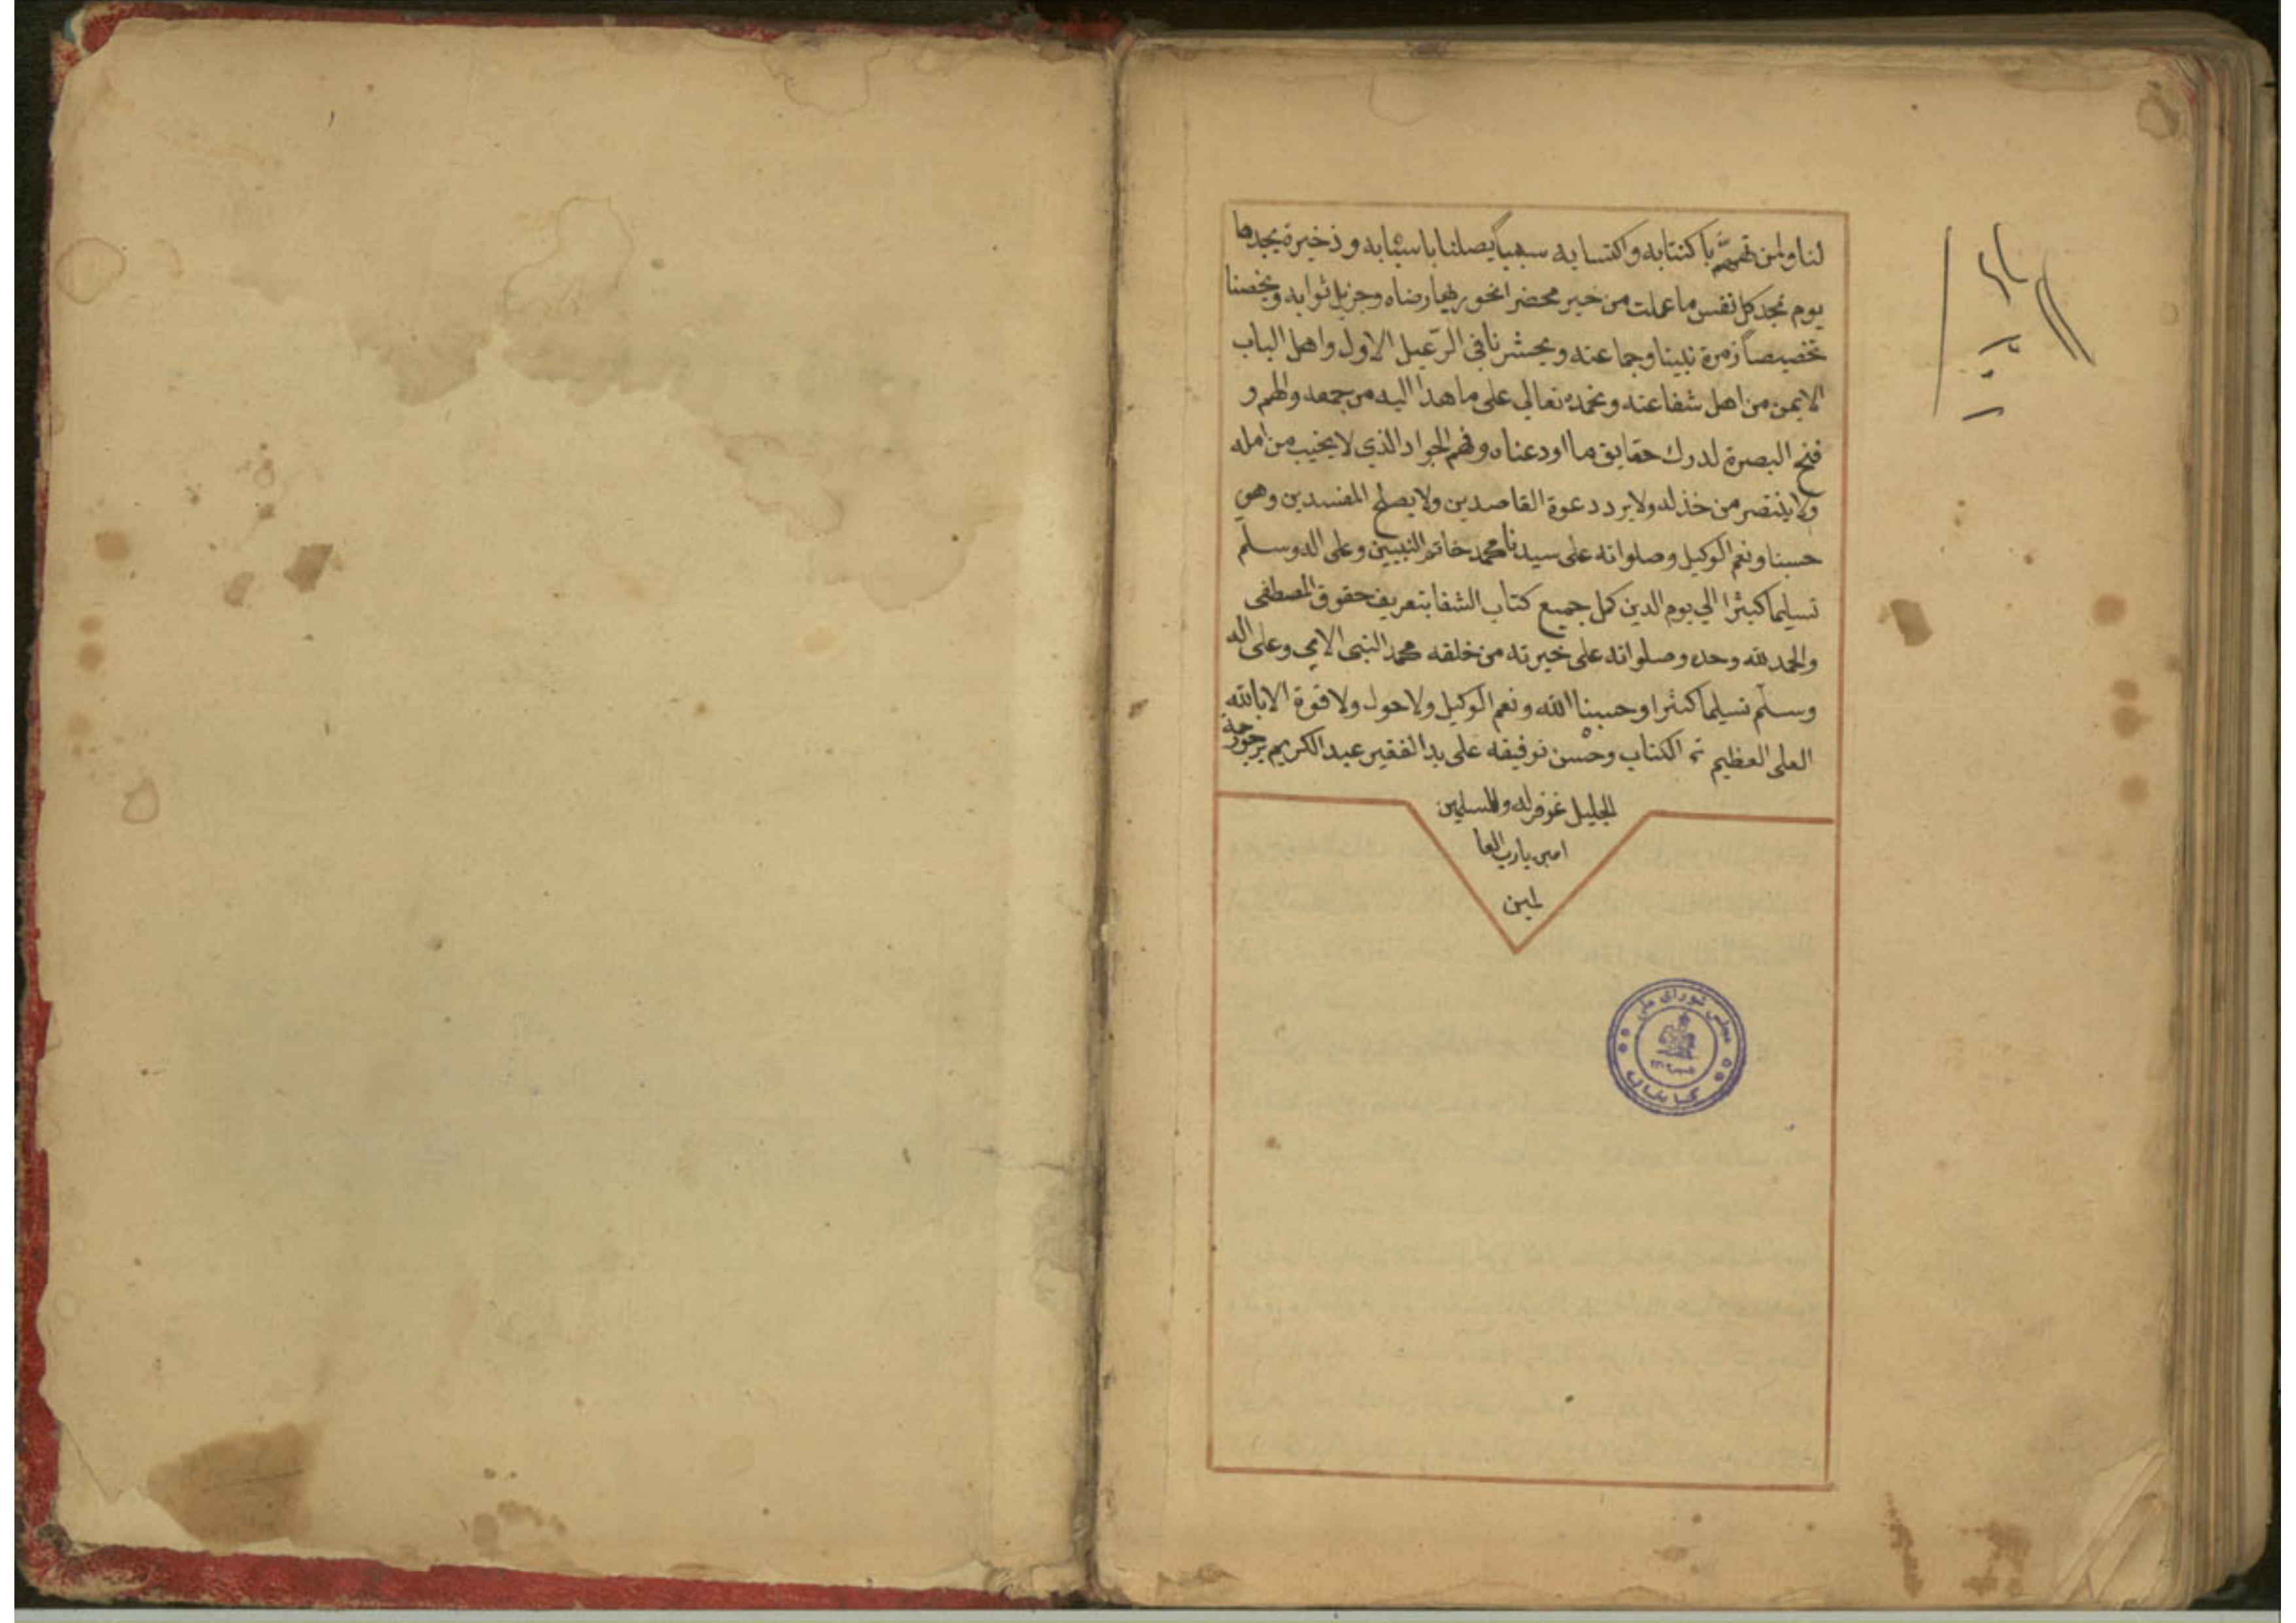 لنا ولمن تهمم باكتتابه واكتسابه سببا يصلنا باسبابه وذخيرة يجدها
يوم تجد كل نفس ما عملت من خير محضرا نحوز بها رضاه وجزيل ثوابه ويخصنا
تخصيصا زمرة نبينا وجماعته ويحشرنا في الرعيل الاول واهل الباب
الايمن من اهل شفاعته ونحمده تعالى على ما هدا اليه من جمعه والهم و
فتح البصرة لدرك حقايق ما اودعناه وفهم الجواد الذي لا يخيب من امله
ولا ينتصر من خذله ولا يرد دعوة القاصدين ولا يصلح المفسدين وهي
حسبنا ونعم الوكيل وصلواته على سيدنا محمد خاتم النبيين وعلى اله وسلم
تسليما كثيرا الي يوم الدين كمل جميع كتاب الشفا بتعريف حقوق المصطفى
والحمد لله وحده وصلواته على خيرته من خلقه محمد النبي الامي وعلى اله
وسلم تسليما كثيرا وحسبنا الله ونعم الوكيل ولا حول ولا قوة الا بالله
العلى العظيم تم الكتاب وحسن توفيقه على يد الفقير عبد الكريم يرجو
الجليل غفر له وللمسلمين
امين يارب العا
لمين
مجلس شورای ملی
کتابخانه